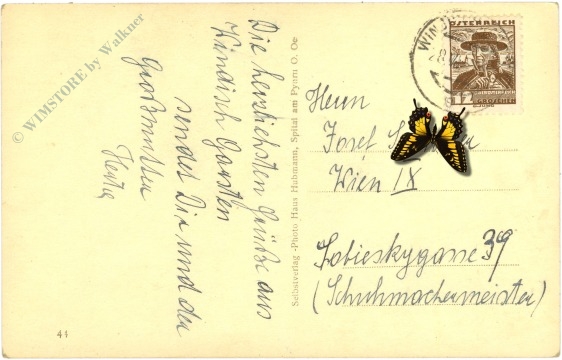 Die herzlichsten Grüße aus
Windisch Garsten
sendet Dir und der
Großmutter
Herta
Selbstverlag - Photo Haus Hubmann, Spital am Pyhrn O. Oe
Herrn
Josef
Wien IX
Sobieskygasse 39
(Schuhmachermeister)
ÖSTERREICH
12 GROSCHEN
WIND
44
© WIMSTORE by Walkner